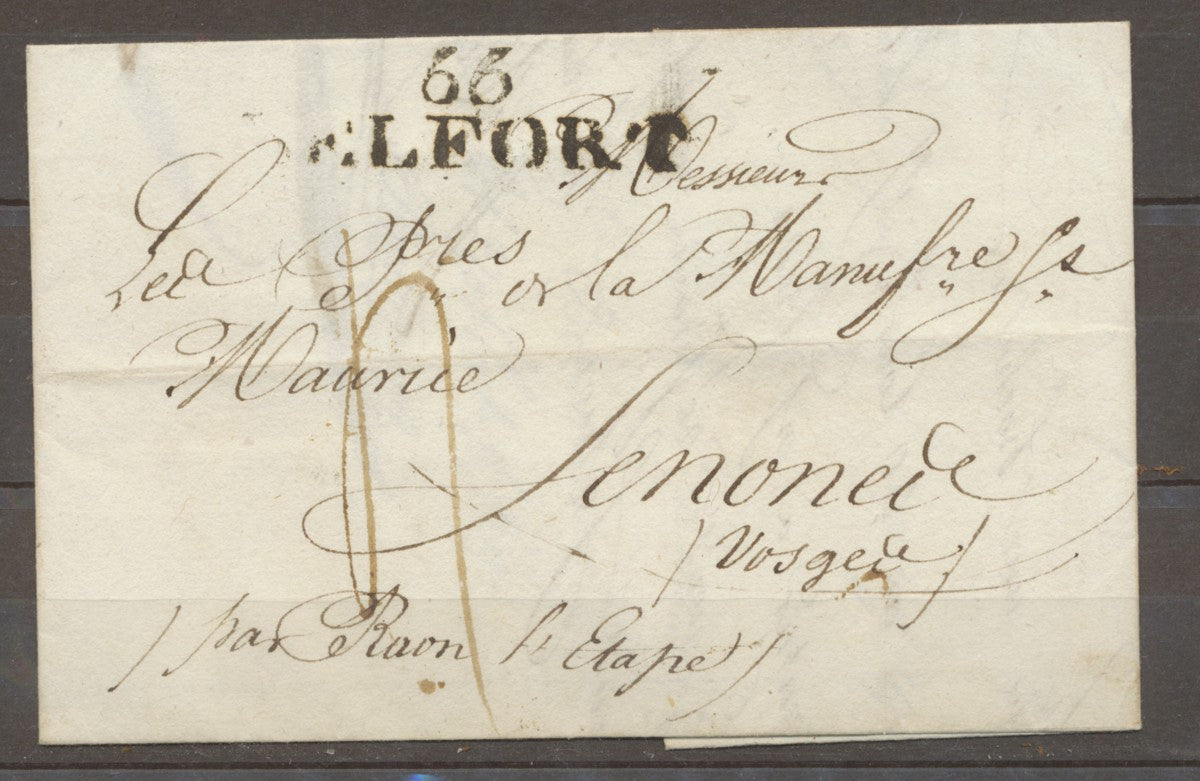 66
ELFORT
Messieurs
Les Pries de la Manufre St
Maurice
Senones
(Vosges)
(par Raon l'Etape)